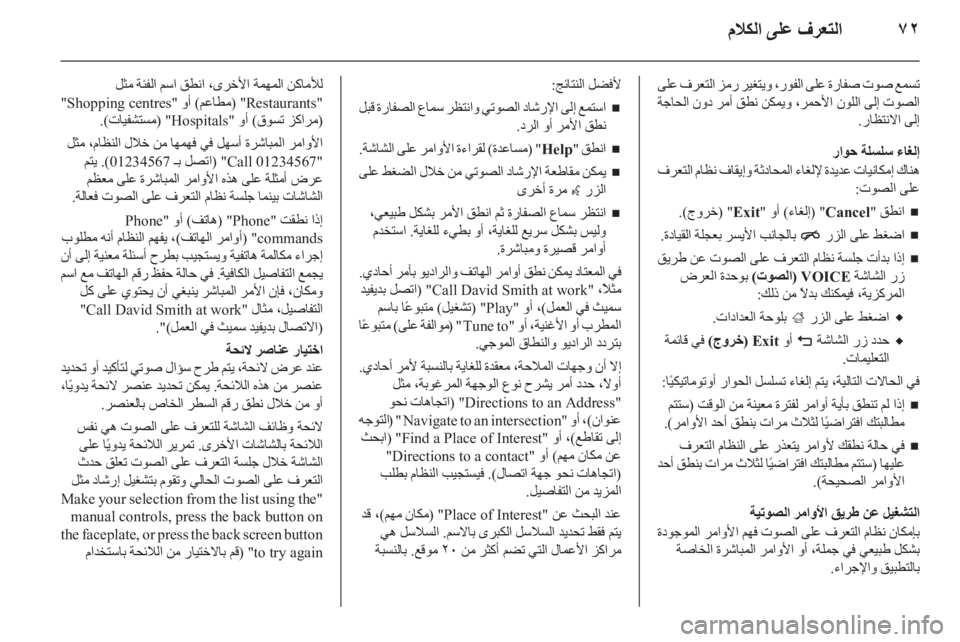 ٧٢ التعرف على الكلام
تسمع صوت صفارة على الفور، ويتغير رمز التعرف على
الصوت إلى اللون الأحمر، ويمكن نطق أمر دون الحاجة
إلى الانتظار.
إلغاء سلسلة حوار
انطق "Cancel" (إلغاء) أو "Exit" (خروج).
هناك إمكانيات عديدة لإلغاء المحادثة وإيقاف نظام التعرف
على الصوت:
اضغط على الزر بالجانب الأيسر بعجلة القيادة.
إذا بدأت جلسة نظام التعرف على الصوت عن طريق
زر الشاشة VOICE (الصوت) بوحدة العرض
المركزية، فيمكنك بدلاً من ذلك:
اضغط على الزر بلوحة العدادات.
حدد زر الشاشة أو Exit (خروج) في قائمة
التعليمات.
في الحالات التالية، يتم إلغاء تسلسل الحوار أوتوماتيكيًا:
إذا لم تنطق بأية أوامر لفترة معينة من الوقت (ستتم
مطالبتك افتراضيًا لثلاث مرات بنطق أحد الأوامر).
في حالة نطقك لأوامر يتعذر على النظام التعرف
عليها (ستتم مطالبتك افتراضيًا لثلاث مرات بنطق أحد
الأوامر الصحيحة).
التشغيل عن طريق الأوامر الصوتية
بإمكان نظام التعرف على الصوت فهم الأوامر الموجودة
بشكل طبيعي في جملة، أو الأوامر المباشرة الخاصة
بالتطبيق والإجراء.
لأفضل النتائج:
استمع إلى الإرشاد الصوتي وانتظر سماع الصفارة قبل
نطق الأمر أو الرد.
انطق "Help" (مساعدة) لقراءة الأوامر على الشاشة.
يمكن مقاطعة الإرشاد الصوتي من خلال الضغط على
الزر مرة أخرى
انتظر سماع الصفارة ثم انطق الأمر بشكل طبيعي،
وليس بشكل سريع للغاية، أو بطيء للغاية. استخدم
أوامر قصيرة ومباشرة.
في المعتاد يمكن نطق أوامر الهاتف والراديو بأمر أحادي.
مثلاً، "Call David Smith at work" (اتصل بديفيد
سميث في العمل)، أو "Play" (تشغيل) متبوعًا باسم
المطرب أو الأغنية، أو "Tune to" (موالفة على) متبوعًا
بتردد الراديو والنطاق الموجي.
إلا أن وجهات الملاحة، معقدة للغاية بالنسبة لأمر أحادي.
أولاً، حدد أمر يشرح نوع الوجهة المرغوبة، مثل
"Directions to an Address" (اتجاهات نحو
عنوان)، أو "Navigate to an intersection" (التوجه
إلى تقاطع)، أو "Find a Place of Interest" (البحث
عن مكان مهم) أو "Directions to a contact"
(اتجاهات نحو جهة اتصال). فيستجيب النظام بطلب
المزيد من التفاصيل.
عند البحث عن "Place of Interest" (مكان مهم)، قد
يتم فقط تحديد السلاسل الكبرى بالاسم. السلاسل هي
مراكز الأعمال التي تضم أكثر من ٢٠ موقع. بالنسبة
للأماكن المهمة الأخرى، انطق اسم الفئة مثل
"Restaurants" (مطاعم) أو "Shopping centres"
(مراكز تسوق) أو "Hospitals" (مستشفيات).
الأوامر المباشرة أسهل في فهمها من خلال النظام، مثل
"Call 01234567" (اتصل بـ 01234567). يتم
عرض أمثلة على هذه الأوامر المباشرة على معظم
الشاشات بينما جلسة نظام التعرف على الصوت فعالة.
إذا نطقت "Phone" (هاتف) أو "Phone
commands" (أوامر الهاتف)، يفهم النظام أنه مطلوب
إجراء مكالمة هاتفية ويستجيب بأسئلة معينة إلى أن
يجمع التفاصيل الكافية. في حالة حفظ رقم الهاتف مع اسم
ومكان، فإن الأمر المباشر ينبغي أن يحتوي على كل
التفاصيل، مثال "Call David Smith at work"
(الاتصال بديفيد سميث في العمل)".
اختيار عناصر لائحة
عند عرض لائحة، يتم طرح سؤال صوتي لتأكيد أو تحديد
عنصر من هذه اللائحة. يمكن تحديد عنصر لائحة يدويًا،
أو من خلال نطق رقم السطر الخاص بالعنصر.
لائحة وظائف الشاشة للتعرف على الصوت هي نفس
اللائحة بالشاشات الأخرى. تمرير اللائحة يدويًا على
الشاشة خلال جلسة التعرف على الصوت تعلق حدث
التعرف على الصوت الحالي وتقوم بتشغيل إرشاد مثل
"Make your selection from the list using the
manual controls, press the back button on
the faceplate, or press the back screen button
to try again" (قم بالاختيار من اللائحة باستخدام